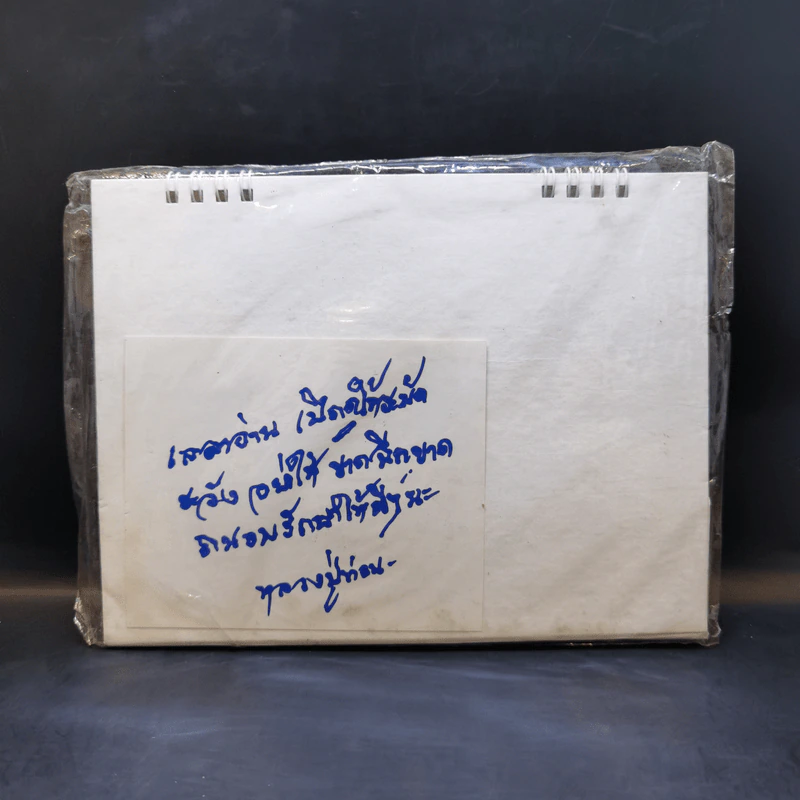 เวลาอ่าน เปิดให้ระมัด
ระวัง อย่าให้ ขาด ฉีกขาด
ถนอมรักษาให้ดีๆ นะ
หลวงปู่ท่อน